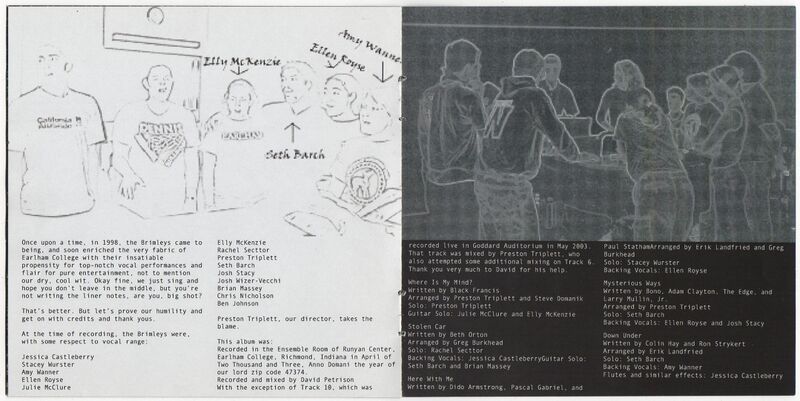 Amy Wanner
Ellen Royse
Elly McKenzie
California
PENN
EARLHAM
Seth Barch
Once upon a time, in 1998, the Brimleys came to
being, and soon enriched the very fabric of
Earlham College with their insatiable
propensity for top-notch vocal performances and
flair for pure entertainment, not to mention
our dry, cool wit. Okay fine, we just sing and
hope you don't leave in the middle, but you're
not writing the liner notes, are you, big shot?
That's better. But let's prove our humility and
get on with credits and thank yous.
At the time of recording, the Brimleys were,
with some respect to vocal range:
Jessica Castleberry
Stacey Wurster
Amy Wanner
Ellen Royse
Julie McClure
Elly McKenzie
Rachel Secttor
Preston Triplett
Seth Barch
Josh Stacy
Josh Wizer-Vecchi
Brian Massey
Chris Nicholson
Ben Johnson
Preston Triplett, our director, takes the
blame.
This album was:
Recorded in the Ensemble Room of Runyan Center,
Earlham College, Richmond, Indiana in April of
Two Thousand and Three, Anno Domani the year of
our lord zip code 47374.
Recorded and mixed by David Petrison
With the exception of Track 10, which was
recorded live in Goddard Auditorium in May 2003.
That track was mixed by Preston Triplett, who
also attempted some additional mixing on Track 6.
Thank you very much to David for his help.
Where Is My Mind?
Written by Black Francis
Arranged by Preston Triplett and Steve Domanik
Solo: Preston Triplett
Guitar Solo: Julie McClure and Elly McKenzie
Stolen Car
Written by Beth Orton
Arranged by Greg Burkhead
Solo: Rachel Secttor
Backing Vocals: Jessica CastleberryGuitar Solo:
Seth Barch and Brian Massey
Here With Me
Written by Dido Armstrong, Pascal Gabriel, and
Paul StathamArranged by Erik Landfried and Greg
Burkhead
Solo: Stacey Wurster
Backing Vocals: Ellen Royse
Mysterious Ways
Written by Bono, Adam Clayton, The Edge, and
Larry Mullin, Jr.
Arranged by Preston Triplett
Solo: Seth Barch
Backing Vocals: Ellen Royse and Josh Stacy
Down Under
Written by Colin Hay and Ron Strykert
Arranged by Erik Landfried
Solo: Seth Barch
Backing Vocals: Amy Wanner
Flutes and similar effects: Jessica Castleberry